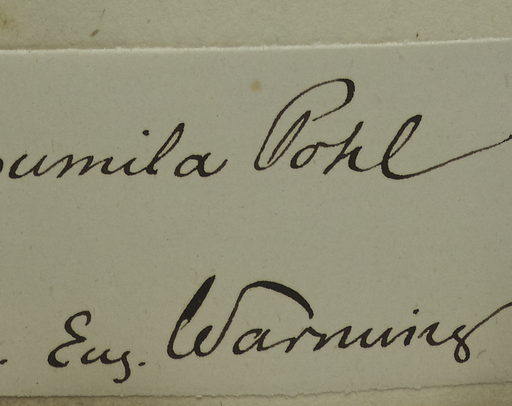 umila Pohl
. Eug. Warming